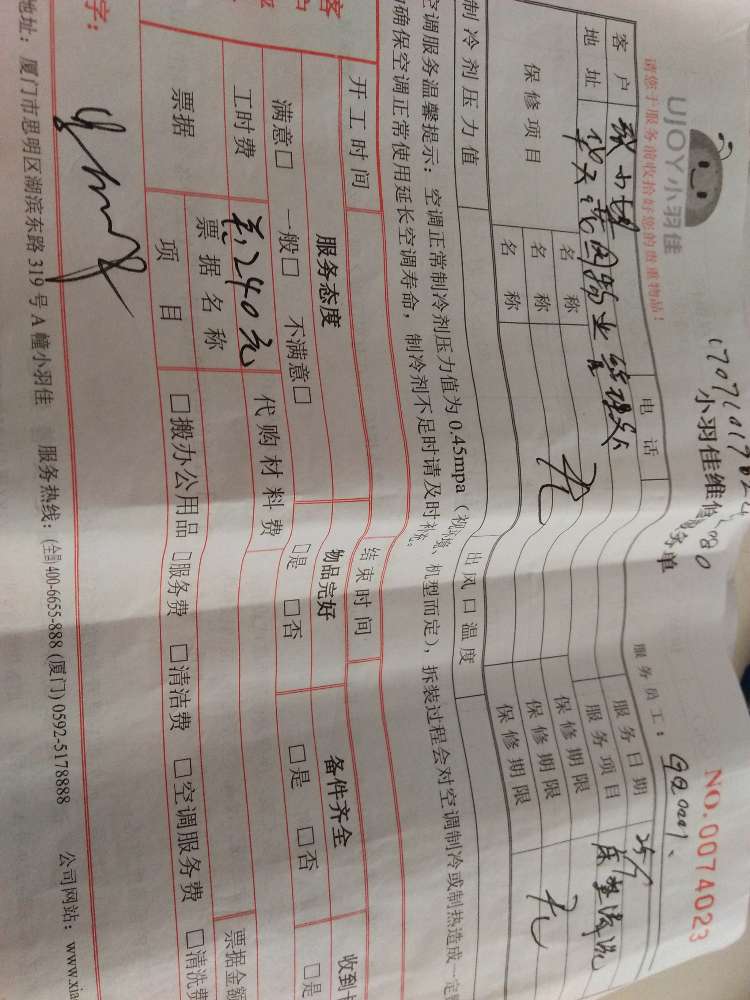 UJOY小羽佳
小羽佳维修
单
NO.0074023
请您于服务前收拾好您的贵重物品!
服务员工:
客户
电话
服务日期
25/7
地址
服务项目
床垫清洗
保修项目
名称
保修期限
名称
无
保修期限
无
名称
保修期限
制冷剂压力值
出风口温度
空调服务温馨提示: 空调正常制冷剂压力值为 0.45mpa (视环境、机型而定), 拆装过程会对空调制冷或制热造成一定
确保空调正常使用延长空调寿命, 制冷剂不足时请及时补充.
开工时间
结束时间
服务态度
物品完好
备件齐全
收到
满意□ 一般□ 不满意□
□是 □否
□是 □否
□是
工时费
240元
代购材料费
票据
票据名称
票据金额
项目
□搬办公用品 □服务费 □清洁费 □空调服务费 □清洗费
字:
地址: 厦门市思明区湖滨东路 319 号 A 幢小羽佳 服务热线: (全国) 400-6655-888 (厦门) 0592-5178888 公司网站: www.xia